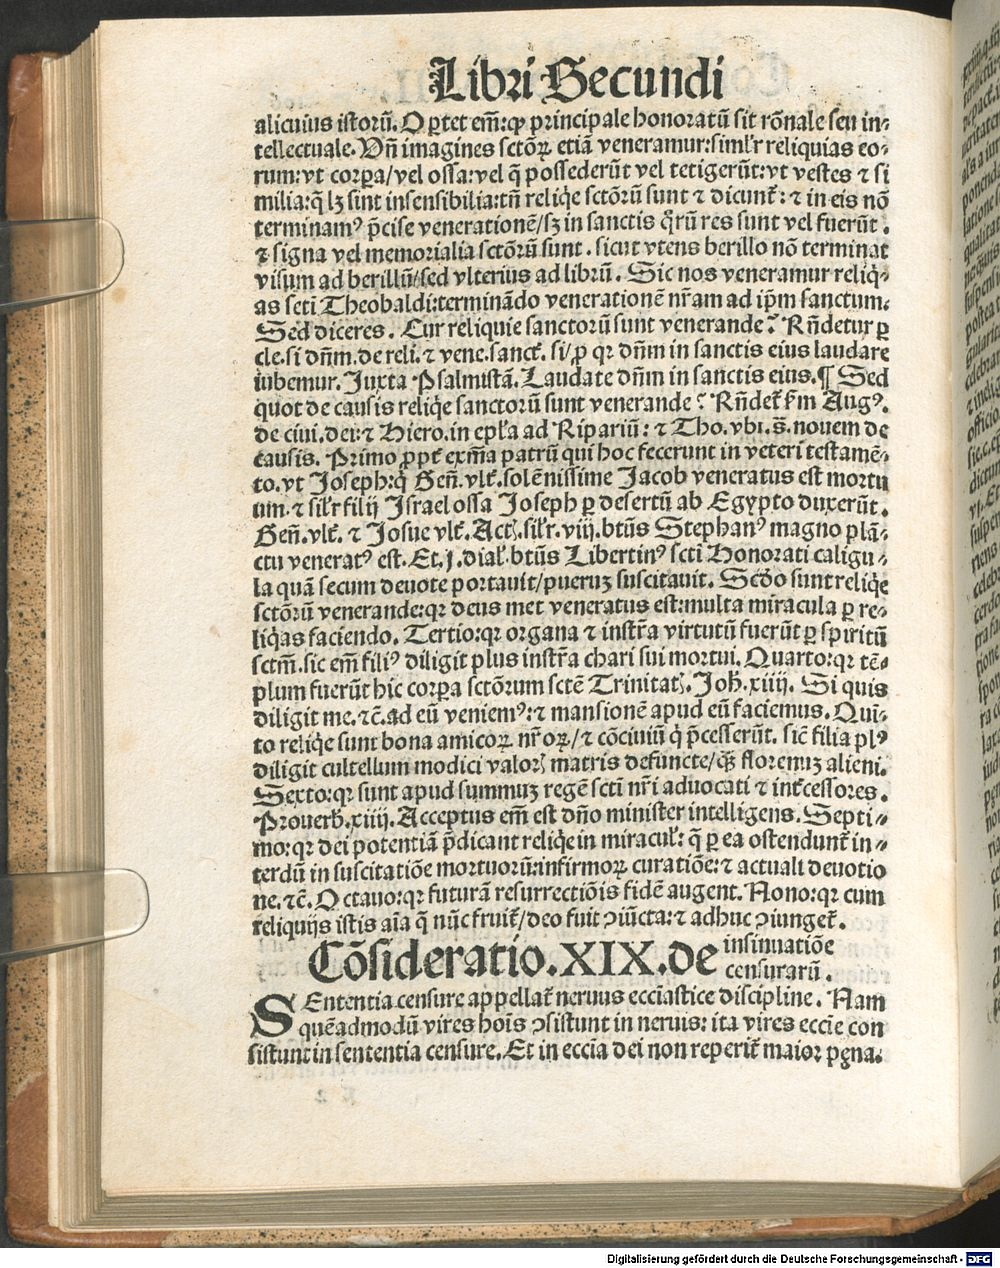 Libri Secundi
alicuius istorũ. Oportet em̃: ꝙ principale honoratũ sit rõnale seu in⸗
tellectuale. Vñ imagines sctõꝝ etiã veneramur: simłr reliquias eo⸗
rum: vt corpora/vel ossa: vel q̃ possederũt vel tetigerũt: vt vestes ⁊ si
milia: q̃ lꝫ sint insensibilia: tñ reliq̃e sctõrũ sunt ⁊ dicunt᷑: ⁊ in eis nõ
terminamꝰ p̃cise venerationẽ/sꝫ in sanctis q̃rũ res sunt vel fuerũt.
⁊ signa vel memorialia sctõrũ sunt. sicut vtens berillo nõ terminat
visum ad berillũ/sed vlterius ad librũ. Sic nos veneramur reliq̃⸗
as scti Theobaldi: terminãdo venerationẽ nr̃am ad ip̃m sanctum.
Sed diceres. Cur reliquie sanctorũ sunt venerande? Rñdetur ꝑ
cle. si dñm. de reli. ⁊ vene. sanct᷑. si/ꝓ qꝛ dñm in sanctis eius laudare
iubemur. Juxta Psalmistã. Laudate dñm in sanctis eius. ¶ Sed
quot de causis reliq̃e sanctorũ sunt venerande? Rñdet᷑ ẜm Augꝰ.
de ciui. dei: ⁊ Hiero. in epła ad Ripariũ: ⁊ Tho. vbi. s̃. nouem de
causis. Primo ꝓpt᷑ exm̃a patrũ qui hoc fecerunt in veteri testamẽ⸗
to. vt Joseph: q̃ Geñ. vlt᷑. solẽnissime Jacob veneratus est mortu
um. ⁊ siłr filij Israel ossa Joseph ꝑ desertũ ab Egypto duxerũt.
Geñ. vlt᷑. ⁊ Josue vlt᷑. Actꝭ. siłr. viij. btũs Stephanꝰ magno plã⸗
ctu veneratꝰ est. Et. j. diał. btũs Libertinꝰ scti Honorati caligu⸗
la quã secum deuote portauit/pueruꝫ suscitauit. Secõdo sunt reliq̃e
sctõrũ venerande: qꝛ deus met veneratus est: multa miracula ꝑ re⸗
liq̃as faciendo. Tertio: qꝛ organa ⁊ instr̃a virtutũ fuerũt ꝑ spiritũ
sctm̃. sic em̃ filiꝰ diligit plus instr̃a chari sui mortui. Quarto: qꝛ tẽ⸗
plum fuerũt hic corꝑa sctõrum sctẽ Trinitatꝭ. Joh̃. xiiij. Si quis
diligit me. ⁊c̃. ad eũ veniemꝰ: ⁊ mansionẽ apud eũ faciemus. Quĩ⸗
to reliq̃e sunt bona amicoꝝ nr̃oꝝ/⁊ cõciuiũ q̃ p̃cesserũt. sic̃ filia plꝰ
diligit cultellum modici valorꝭ matris defuncte/q̃ꝫ florenuꝫ alieni.
Sexto: qꝛ sunt apud summuꝫ regẽ scti nr̃i aduocati ⁊ int᷑cessores.
Prouerb̃. xiiij. Acceptus em̃ est dño minister intelligens. Septi⸗
mo: qꝛ dei potentiã p̃dicant reliq̃e in miracuł: q̃ ꝑ ea ostendunt᷑ in⸗
terdũ in suscitatiõe mortuorũ: infirmoꝝ curatiõe: ⁊ actuali deuotio
ne. ⁊c̃. Octauo: qꝛ futurã resurrectiõis fidẽ augent. Nono: qꝛ cum
reliquijs istis aĩa q̃ nũc fruit᷑/deo fuit ↄiũcta: ⁊ adhuc ↄiunget᷑.
Cõsideratio. XIX. de insinuatiõe
censurarũ.
SEntentia censure appellat᷑ neruus ecclĩastice discipline. Nam
quẽadmodũ vires hoĩs ↄsistunt in neruis: ita vires eccĩe con
sistunt in sententia censure. Et in eccĩa dei non reperit᷑ maioꝛ pẽna.
Digitalisierung gefördert durch die Deutsche Forschungsgemeinschaft - DFG